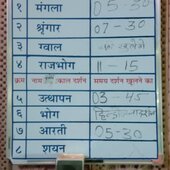 १ मंगला 05-30
२ श्रृंगार 07-30
३ ग्वाल
४ राजभोग 11-15
क्रम नाम काल दर्शन समय दर्शन खुलने का
५ उत्थापन 03-45
६ भोग
७ आरती 05-30
८ शयन